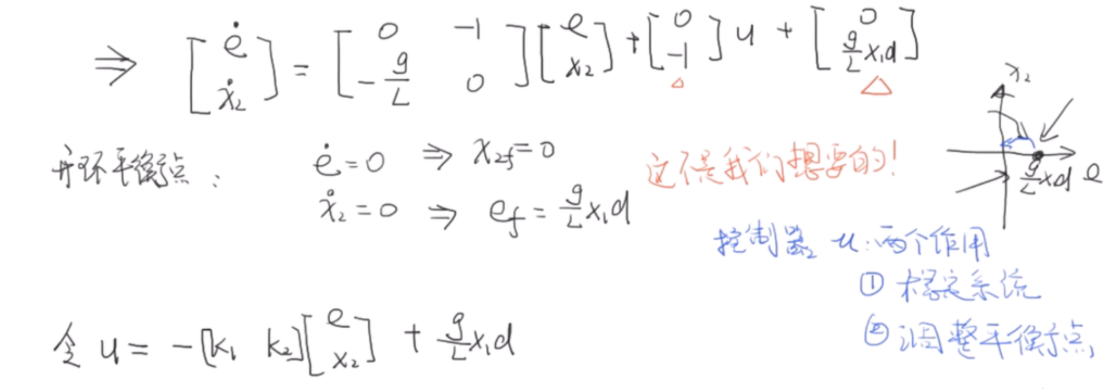 ⇒ [ė ẋ₂] = [0 -1 -g/L 0][e x₂] + [0 -1] u + [0 g/L x₁d]
开环平衡点： ė=0 ⇒ x₂f=0
ẋ₂=0 ⇒ ef = g/L x₁d
这不是我们想要的!
x₂
g/L x₁d e
控制器 u:两个作用
① 稳定系统
② 调整平衡点,
令 u = -[k₁ k₂][e x₂] + g/L x₁d